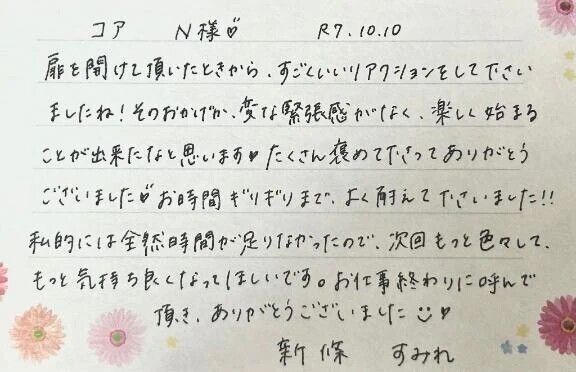 コア N様♡ R7.10.10
扉を開けて頂いたときから、すごくいいリアクションをして下さい
ましたね!そのおかげか、変な緊張感がなく、楽しく始まる
ことが出来たなと思います♥たくさん褒めて下さってありがとう
ございました♡お時間ギリギリまで、よく耐えて下さいました!!
私的には全然時間が足りなかったので、次回もっと色々して、
もっと気持ち良くなってほしいです。お仕事終わりに呼んで
頂き、ありがとうございました☺♥
新條 すみれ